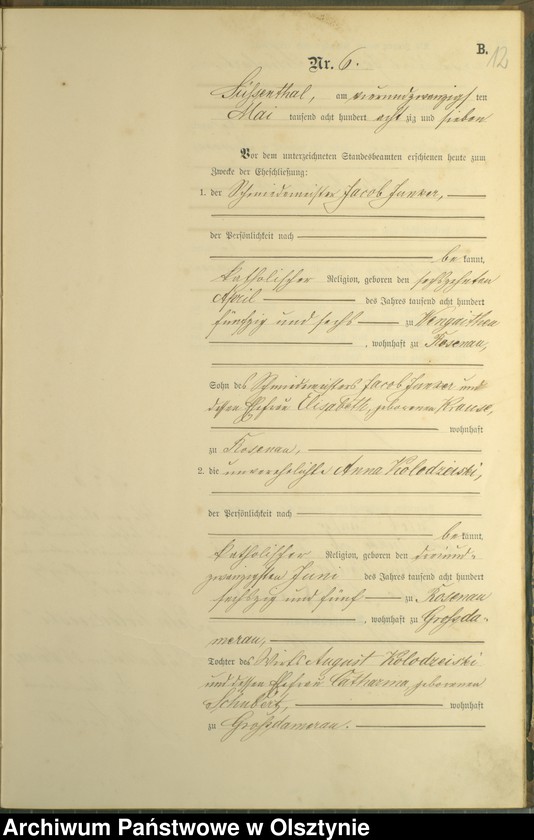 B.
12
Nr. 6.
Süssenthal, am vierundzwanzigs ten
Mai tausend acht hundert acht zig und sieben
Vor dem unterzeichneten Standesbeamten erschienen heute zum
Zwecke der Eheschließung:
1. der Schmiedemeister Jacob
der Persönlichkeit nach
be kannt,
katholischer Religion, geboren den sechszehnten
April des Jahres tausend acht hundert
fünfzig und sechs zu Wengaithen
, wohnhaft zu Rosenau,
Sohn des Schmiedemeisters Jacob und
dessen Ehefrau Elisabeth, geborenen Krause,
wohnhaft
zu Rosenau,
2. die unverehelichte Anna Kolodzeiski,
der Persönlichkeit nach
be kannt,
katholischer Religion, geboren den dreiund-
zwanzigsten Juni des Jahres tausend acht hundert
sechszig und fünf zu Rosenau
, wohnhaft zu Grossda-
merau,
Tochter des Wirths August Kolodzeiski
und dessen Ehefrau Catharina, geborenen
Schubert, wohnhaft
zu Grossdamerau.
Archiwum Państwowe w Olsztynie